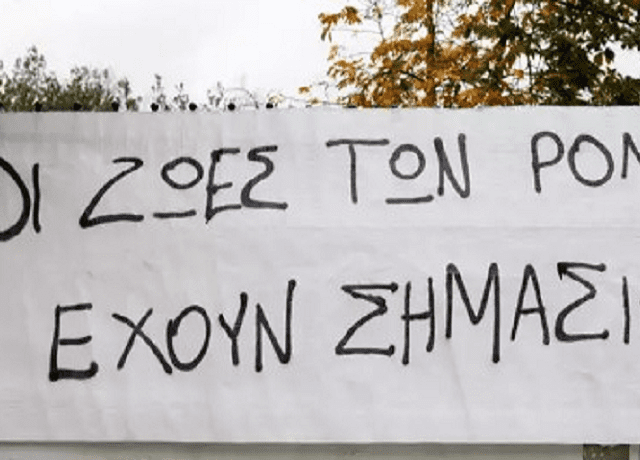 ΟΙ ΖΩΕΣ ΤΩΝ ΡΟΜ
ΕΧΟΥΝ ΣΗΜΑΣΙ